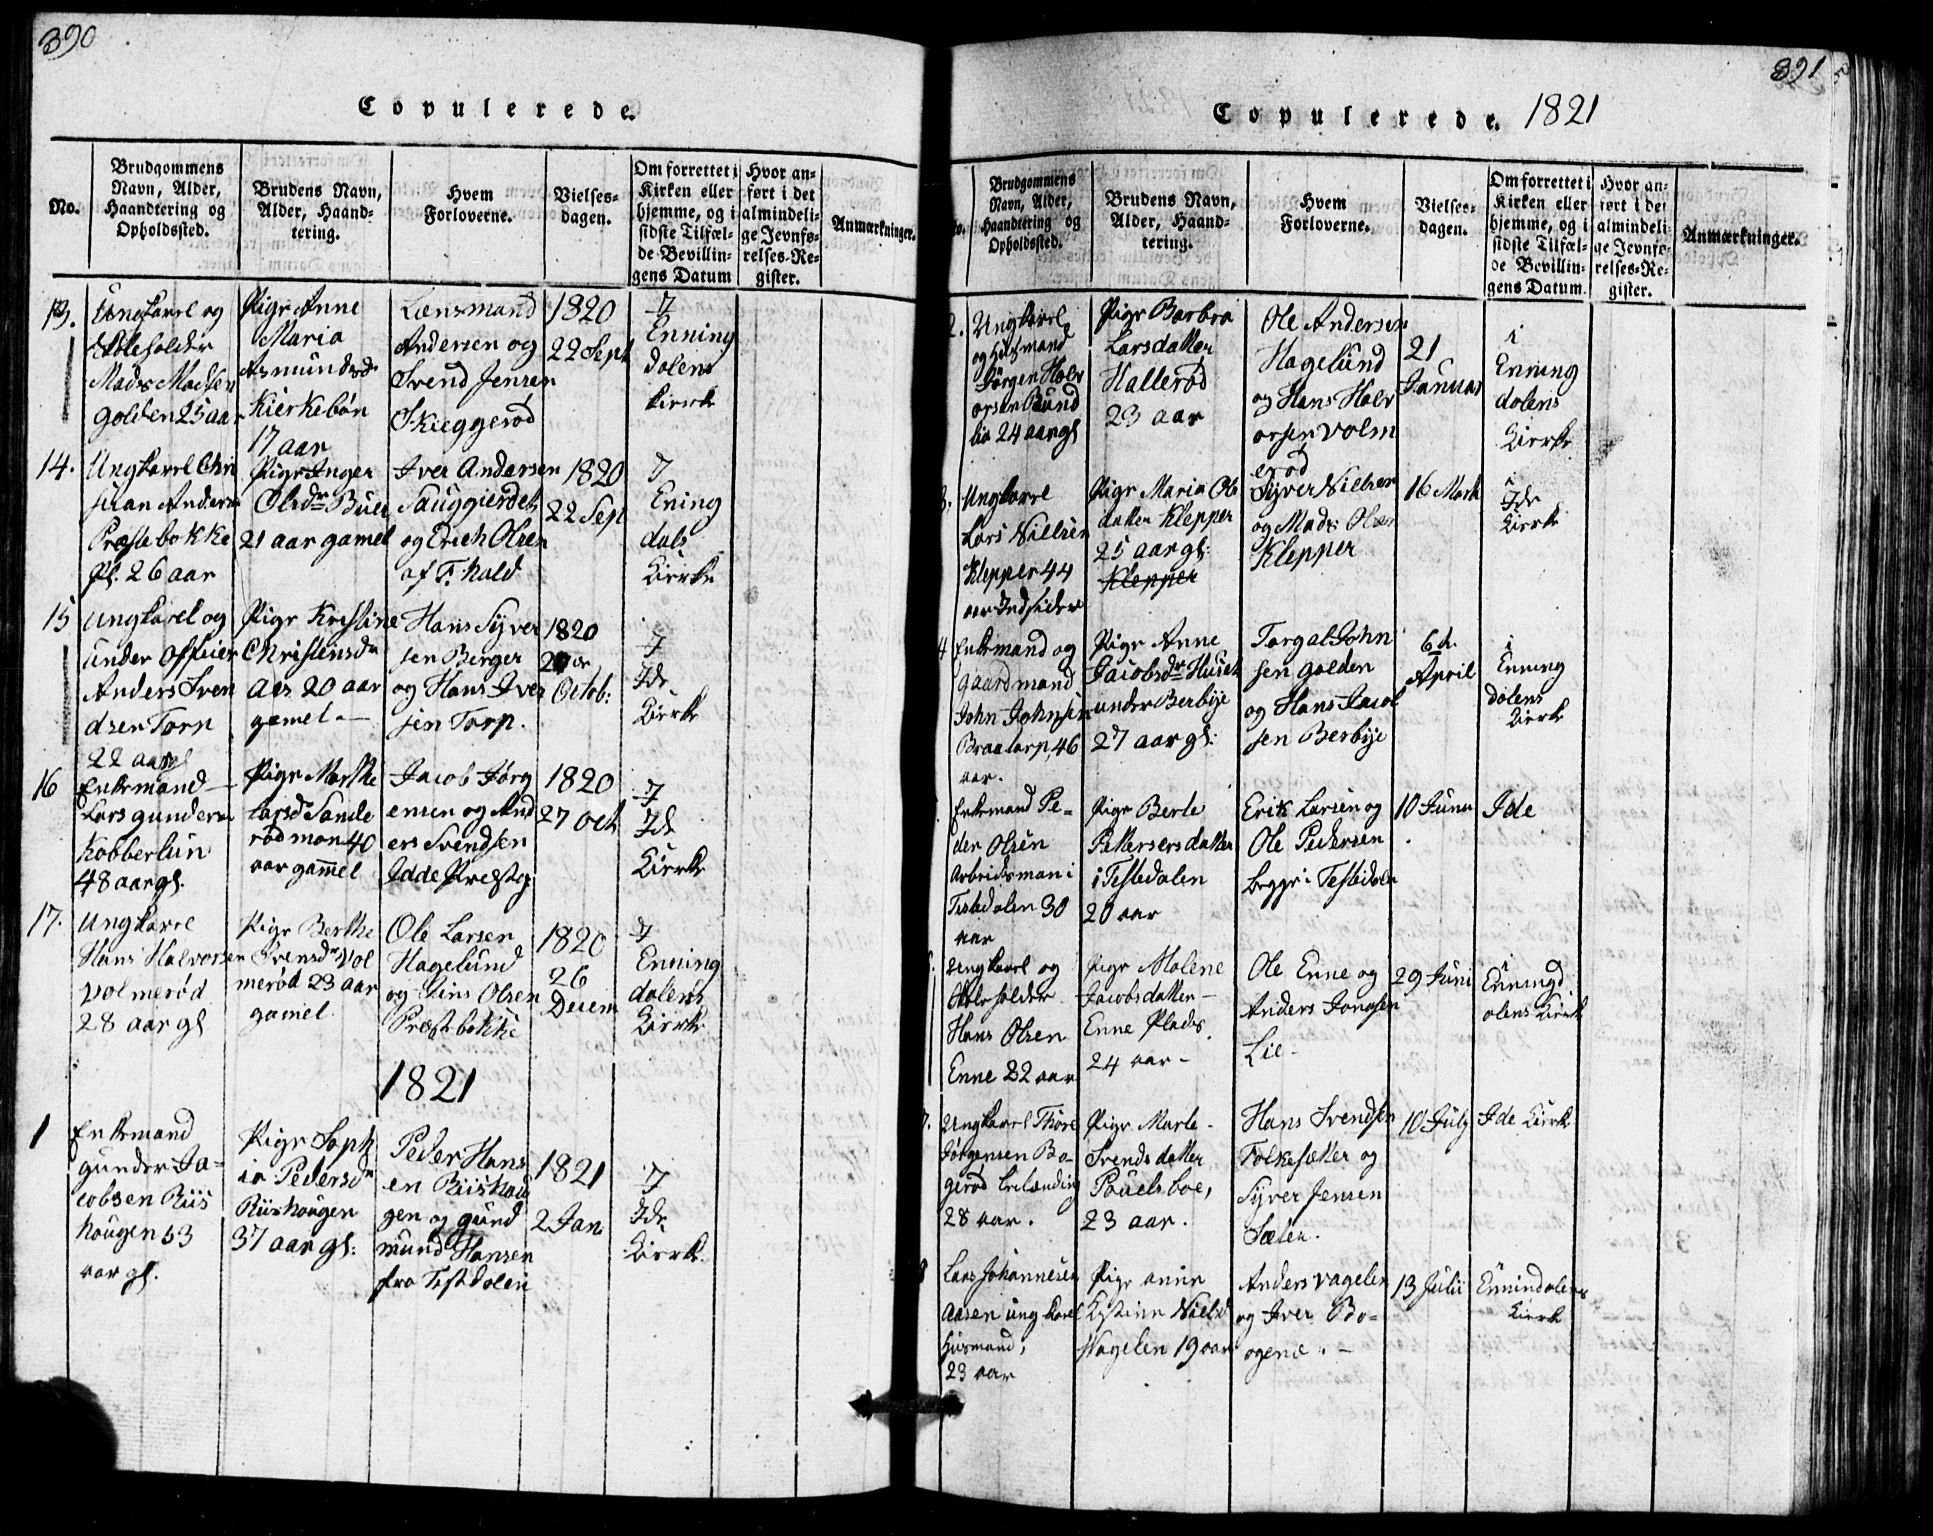 390
Copulerede.
No.
Brudgommens
Navn, Alder,
Haandtering og
Opholdssted.
Brudens Navn,
Alder, Haand-
tering.
Hvem
Forloverne.
Vielses-
dagen.
Om forrettet i
Kirken eller
hjemme, og i
sidste Tilfæl-
de Bevillin-
gens Datum
Hvor an-
ført i det
almindeli-
ge Jevnfø-
relses-Re-
gister.
Anmærkninger.
13.
Ungkarl og
Mads Madsen
golden 25 aar
Pige Anne
Maria
Asmundsd
Kirkebøn
17 aar
Lensmand
Andersen og
Svend Jensen
Skieggerød
1820
22 Sept
I
Enning
dalens
Kirke
14.
Ungkarl Chri
stian Anders
Præstebakke
Pl. 26 aar
Pige Inger
Olsdr Buer
21 aar gamel
Iver Andersen
Sauggierdet
og Erich Olsen
af F. hald
1820
22 Sep
I
Ening
dals
Kirke
15
Ungkarl og
under Officier
Anders Sven
dsen Torp
22 aar
Pige Kristine
Christensdr
Aes 20 aar
gamel
Hans Syver
sen Berger
og Hans Iver
sen Torp.
1820
Octob:
I
Ide
Kirke
16
Enkemand
Lars gunders
Kobberlun
48 aar gl.
Pige Marthe
Larsd Sande
rød mon 40
aar gammel
Jacob Jørg
ensen og And
ers Svendsen
Idde Prestg
1820
27 Oct
I
Ide
Kirke
17.
Ungkarl
Hans Halvorsen
Volmerød
28 aar gl
Pige Berthe
Svensdr Vol
merød 23 aar
gamel
Ole Larsen
Hagelund
og Jens Olsen
Præstbakke
1820
26
Decem
I
Enning
dalens
Kirke
1821
1
Enkemand
gunder Ja-
cobsen Riis
hougen 53
aar gl.
Pige Soph
ia Pedersdr
Riishougen
37 aar gl:
Peder Hans
en Riishou
gen og gund
mund Hansen
fra Tistdalen
1821
2 Jan
I
Ide
Kirke
391
Copulerede. 1821
No.
Brudgommens
Navn, Alder,
Haandtering og
Opholdssted.
Brudens Navn,
Alder, Haand-
tering.
Hvem
Forloverne.
Vielses-
dagen.
Om forrettet i
Kirken eller
hjemme, og i
sidste Tilfæl-
de Bevillin-
gens Datum.
Hvor an-
ført i det
almindeli-
ge Jevnfø-
relses-Re-
gister.
Anmærkninger.
2.
Ungkarl
og Husmand
Jørgen Halv
orsen Bund
lia 24 aar gl
Pige Barbra
Larsdatter
Hallerød
23 aar
Ole Andersen
Hagelund
og Hans Halv
orsen Volm
erød
21
Januar
i
Enning
dalens
Kirke
3.
Ungkarl
Lars Nielsen
Klepper 44
aar Indsidder
Pige Maria Ols
datter Klepper
25 aar gl:
Klepper
Syver Nielsen
og Mads Olsen
Klepper
16 Marts
i
Ide
Kirke
4
Enkemand og
gaardmand
John Johnsen
Braatorp, 46
aar.
Pige Anne
Jacobsdr Huset
under Berbye
27 aar gl:
Torgal John
sen golden
og Hans Jacob
sen Berbye
6te
April
i
Enning
dalens
Kirke
Enkemand Pe-
der Olsen
Arbeidsman i
Tistedalen 30
aar
Pige Berte
Pettersersdatter
i Testedalen
20 aar
Erik Larsen og
Ole Pedersen
begge i Testedalen
10 Juni
Ide
Ungkarl og
Hans Olsen
Enne 22 aar
Pige Malene
Jacobsdatter
Enne Plads
24 aar -
Ole Enne og
Anders Jonassen
Lie -
29 Juni
Enningd
alens Kirke
7.
Ungkarl Thore
Jørgensen Bo-
gerød
28 aar.
Pige Marte -
Svendsdatter
Pouelsboe,
23 aar.
Hans Svendsen
Folkesætter og
Syver Jensen
Sælen.
10 July
Ide Kirke
8
Lars Johannesen
Aasen ungkarl
Husmand,
23 aar
Pige Anne
Kistine Nielsd
Vagelen 19 aar
Anders Vagelen
og Iver Bo-
ogene. -
13 Julii
Ennindalens
Kirke